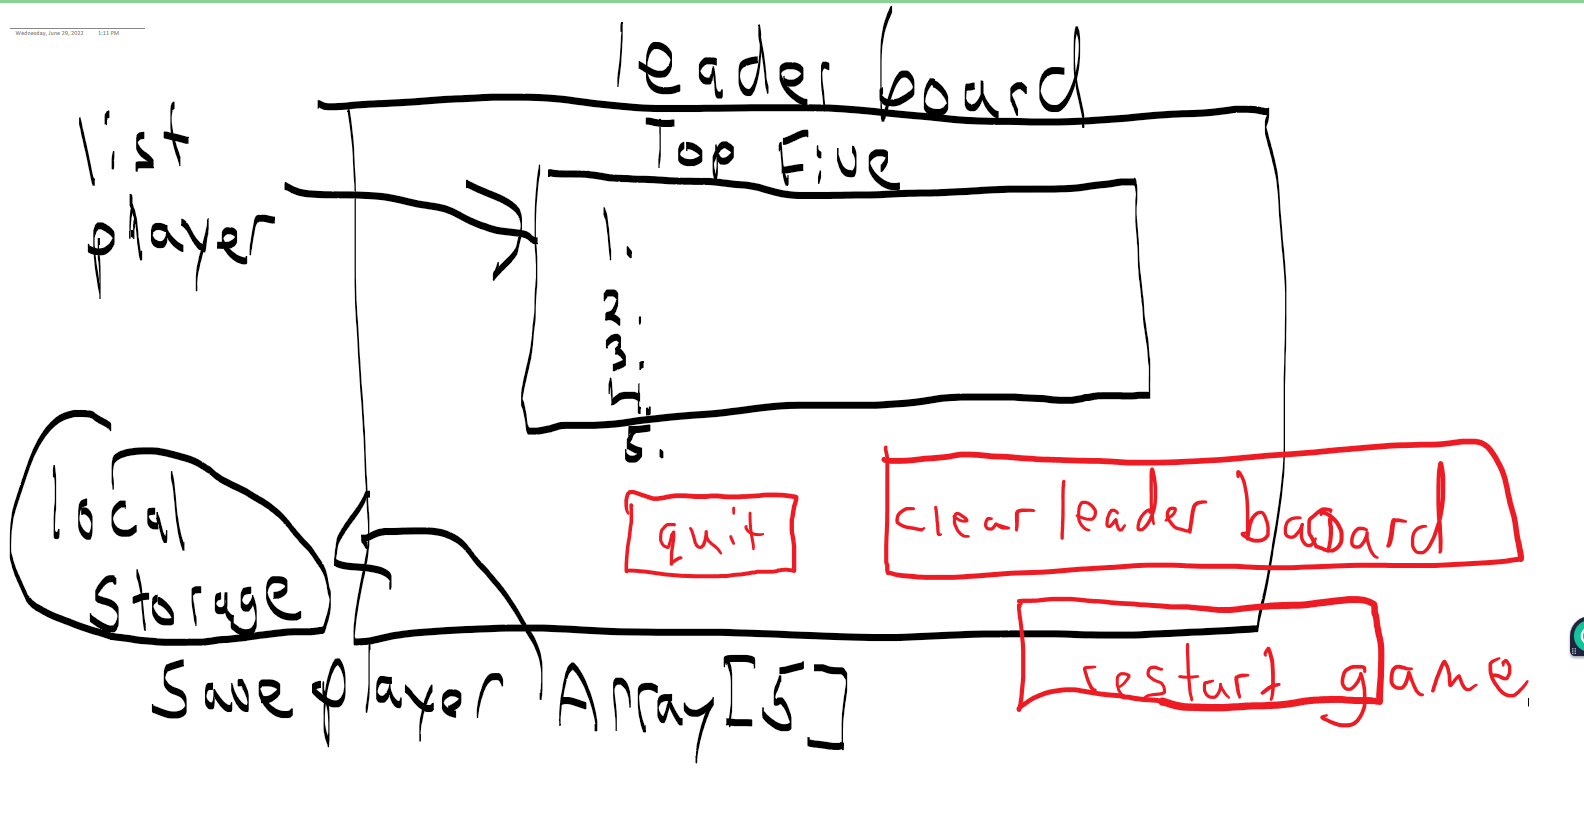 Wednesday, June 29, 2022 1:11 PM
leader board
list
player
Top Five
1.
2.
3.
4.
5.
local
storage
quit
clear leader baoard
restart game
Save player Array[5]